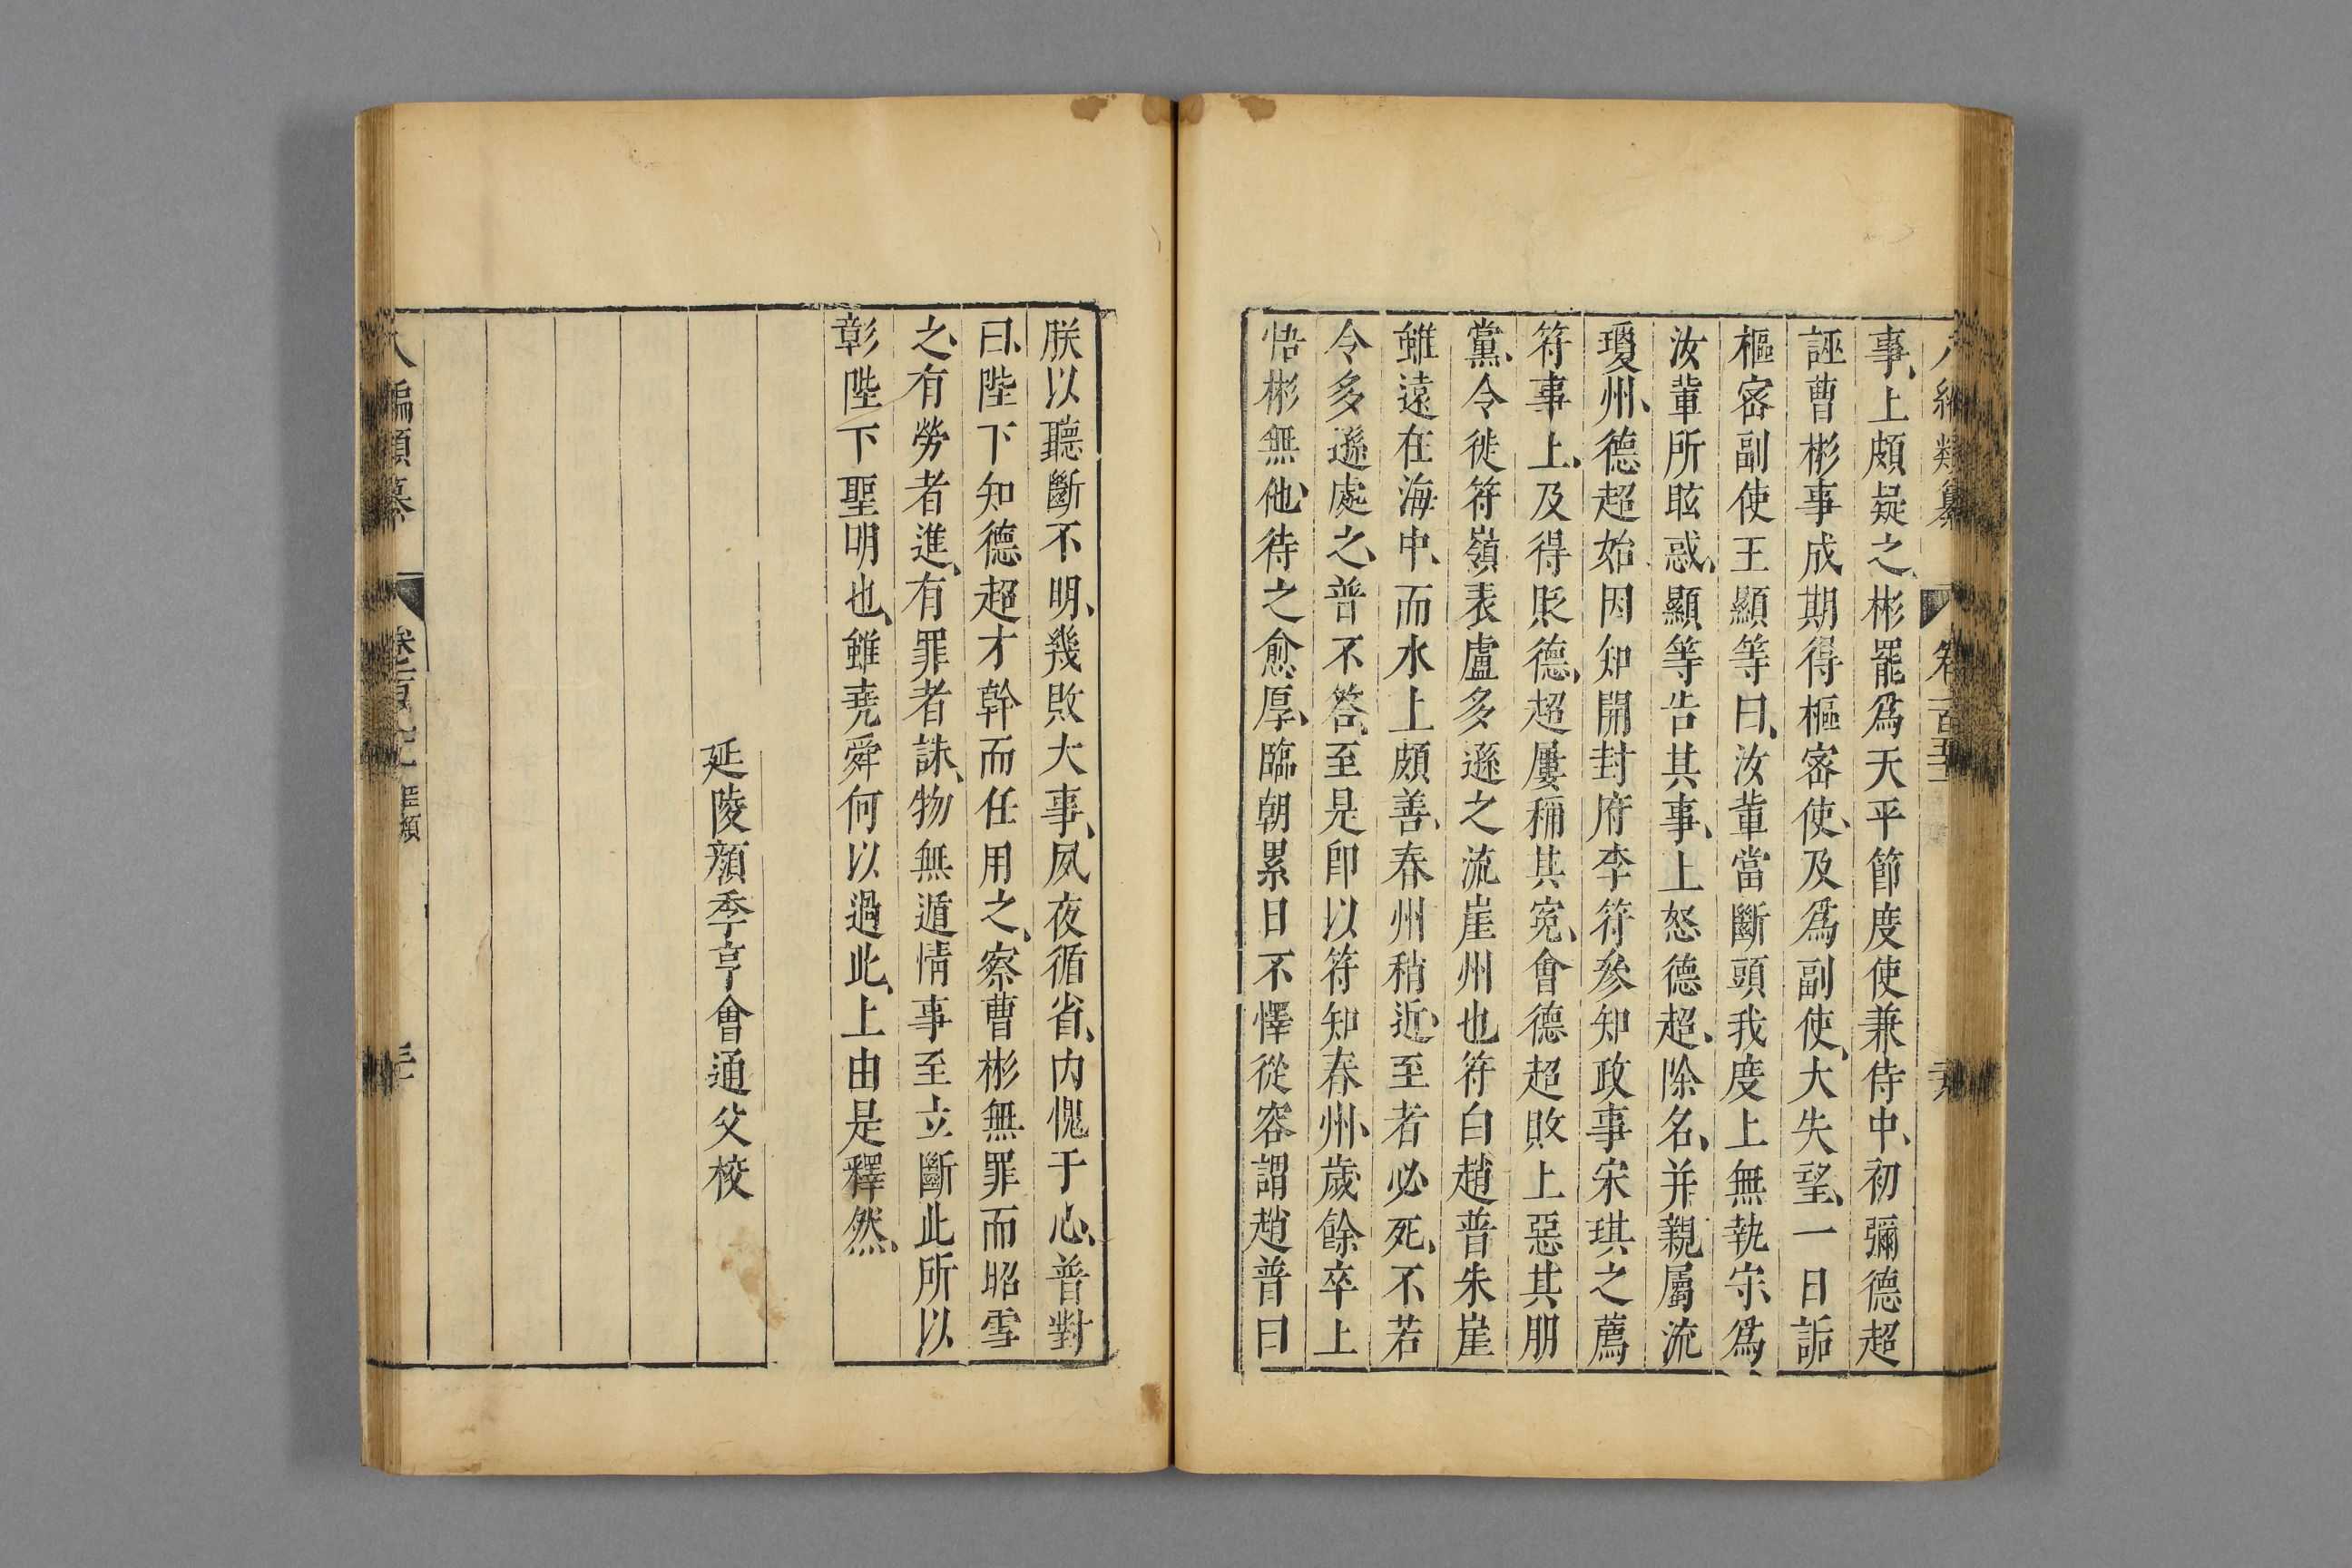 事、上頗疑之、彬罷爲天平節度使兼侍中、初彌德超
誣曹彬事成期得樞密使、及爲副使、大失望、一日詬
樞密副使王顯等曰、汝輩當斷頭我度上無執守、爲
汝輩所眩惑、顯等告其事、上怒德超、除名、并親屬流
瓊州、德超始因知開封府李符參知政事宋琪之薦
符事上、及得貶德、超屢稱其寃、會德超敗上惡其朋
黨、令徙符嶺表盧多遜之流崖州也符白趙普朱崖
雖遠在海中、而水上頗善、春州稍近、至者必死、不若
令多遜處之、普不答、至是卽以符知春州、歲餘卒上
悟彬無他、待之愈厚、臨朝累日不懌從容謂趙普曰
朕以聽斷不明、幾敗大事、夙夜循省、内愧于心、普對
曰、陛下知德超才幹而任用之、察曹彬無罪而昭雪
之、有勞者進、有罪者誅、物無遁情事至立斷此所以
彰陛下聖明也、雖堯舜何以過此、上由是釋然、
延陵顏季亨會通父校